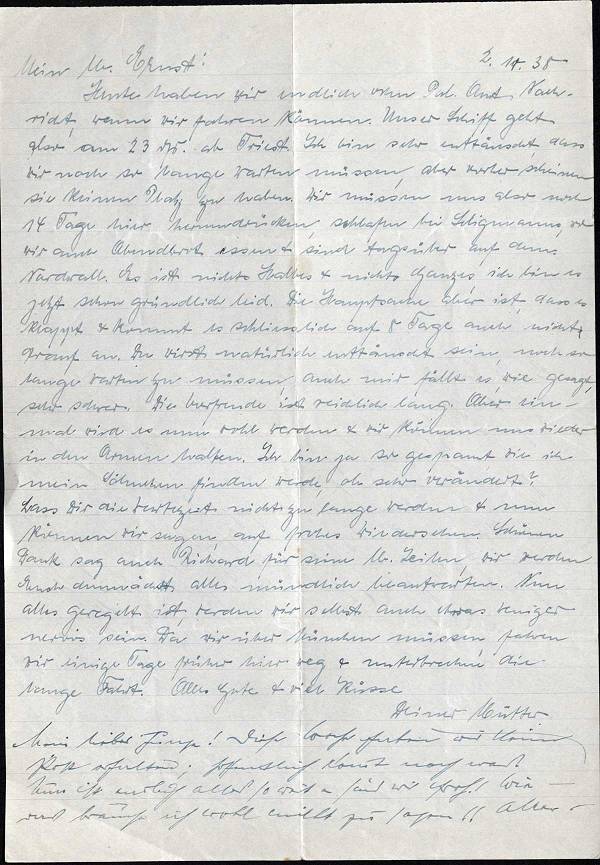 Mein lb. Ernst! 2. 11. 38
Heute haben wir endlich vom Pal. Amt Nach-
richt, wann wir fahren können. Unser Schiff geht
also am 23. djs. ab Triest. Ich bin sehr enttäuscht, dass
wir noch so lange warten müssen, aber vorher scheinen
sie keinen Platz zu haben. Wir müssen uns also noch
14 Tage hier herumdrücken, schlafen bei Seligmanns, wo
wir auch Abendbrot essen & sind tagsüber auf dem
Nordwall. Es ist nichts Halbes & nichts Ganzes, ich bin es
jetzt schon gründlich leid. Die Hauptsache aber ist, dass es
klappt & kommt es schliesslich auf 8 Tage auch nicht
drauf an. Du wirst natürlich enttäuscht sein, noch so
lange warten zu müssen, auch mir fällt es, wie gesagt,
sehr schwer. Die Vorfreude ist reichlich lang. Aber ein-
mal wird es nun wohl werden & wir können uns wieder
in den Armen halten. Ich bin ja so gespannt wie ich
mein Söhnchen finden werde, ob sehr verändert?
Lass Dir die Wartezeit nicht zu lange werden & nun
können wir sagen, auf frohes Wiedersehen. Schönen
Dank sag auch Richard für seine lb. Zeilen, wir werden
Euch demnächst alles mündlich beantworten. Nun
alles geregelt ist, werden wir selbst auch etwas weniger
nervös sein. Da wir über München müssen, fahren
wir einige Tage früher hier weg & unterbrechen die
lange Fahrt. Alles Gute & viele Küsse
Deiner Mutter
Mein lieber Junge! Diese Woche haben wir keine
Post erhalten, hoffentlich kommt noch was.
Nun ist endlich alles so weit & sind wir froh! Wie
brauche ich wohl nicht zu sagen!!